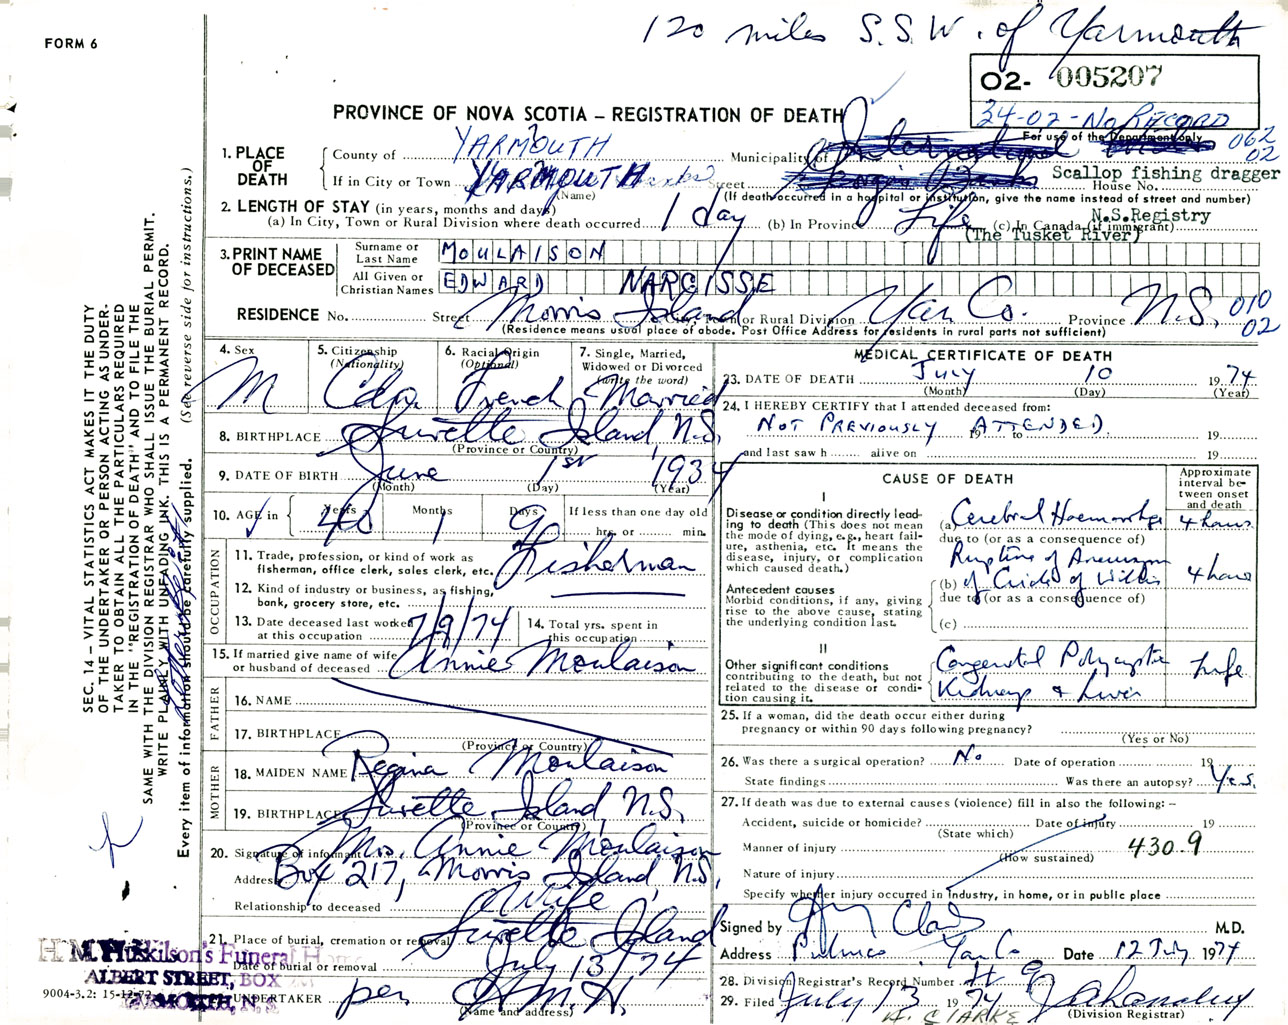 120 miles S.S.W. of Yarmouth
FORM 6
02- 005207
PROVINCE OF NOVA SCOTIA – REGISTRATION OF DEATH
34-02-No RECORD
For use of the Department only
062
02
1. PLACE OF DEATH
County of YARMOUTH Municipality of
If in City or Town YARMOUTH Street House No.
Scallop fishing dragger
(Name) (If death occurred in a hospital or institution, give the name instead of street and number)
2. LENGTH OF STAY (in years, months and days)
N.S.Registry
(a) In City, Town or Rural Division where death occurred 1 day (b) In Province Life (c) In Canada (if immigrant)
(The Tusket River)
3. PRINT NAME OF DECEASED
Surname or Last Name MOULAISON
All Given or Christian Names EDWARD NARCISSE
RESIDENCE No. Street Morris Island City, Town or Rural Division Yar Co. Province N.S. 010
02
(Residence means usual place of abode. Post Office Address for residents in rural parts not sufficient)
4. Sex M
5. Citizenship (Nationality) Cdn.
6. Racial Origin (Optional) French
7. Single, Married, Widowed or Divorced (write the word) Married
8. BIRTHPLACE Surette Island N.S.
(Province or Country)
9. DATE OF BIRTH June 1st 1934
(Month) (Day) (Year)
10. AGE in Years 40 Months 1 Days 9 If less than one day old hrs. or min.
OCCUPATION
11. Trade, profession, or kind of work as fisherman, office clerk, sales clerk, etc. Fisherman
12. Kind of industry or business, as fishing, bank, grocery store, etc.
13. Date deceased last worked at this occupation 7/9/74
14. Total yrs. spent in this occupation
15. If married give name of wife or husband of deceased Annie Moulaison
FATHER
16. NAME
17. BIRTHPLACE
(Province or Country)
MOTHER
18. MAIDEN NAME Regina Moulaison
19. BIRTHPLACE Surette Island, N.S.
(Province or Country)
20. Signature of informant Mrs. Annie Moulaison
Address Box 217, Morris Island N.S.
Relationship to deceased Wife
21. Place of burial, cremation or removal Surette Island
Date of burial or removal July 13/74
UNDERTAKER per H.M.H.
(Name and address)
H. M. Huskilson's Funeral Home
ALBERT STREET, BOX
YARMOUTH, N.S.
9004-3.2: 15-12-72
MEDICAL CERTIFICATE OF DEATH
23. DATE OF DEATH July 10 1974
(Month) (Day) (Year)
24. I HEREBY CERTIFY that I attended deceased from:
NOT PREVIOUSLY ATTENDED 19 to 19
and last saw h alive on 19
CAUSE OF DEATH
Approximate interval between onset and death
I
Disease or condition directly leading to death (This does not mean the mode of dying, e.g., heart failure, asthenia, etc. It means the disease, injury, or complication which caused death.)
(a) Cerebral Haemorrhage 4 hours
due to (or as a consequence of)
Rupture of Aneurysm
(b) of Circle of Willis 4 hours
due to (or as a consequence of)
(c)
Antecedent causes
Morbid conditions, if any, giving rise to the above cause, stating the underlying condition last.
II
Other significant conditions contributing to the death, but not related to the disease or condition causing it.
Congenital Polycystic Kidneys & Liver Life
25. If a woman, did the death occur either during pregnancy or within 90 days following pregnancy?
(Yes or No)
26. Was there a surgical operation? No Date of operation 19
State findings Was there an autopsy? Yes.
27. If death was due to external causes (violence) fill in also the following: –
Accident, suicide or homicide? Date of injury 19
(State which)
Manner of injury 430.9
(How sustained)
Nature of injury
Specify whether injury occurred in industry, in home, or in public place
Signed by Clark M.D.
Address Pubnico Yar Co Date 12 July 1974
28. Division Registrar's Record Number
29. Filed July 13 1974
(Division Registrar)
H. CLARKE
SEC. 14 – VITAL STATISTICS ACT MAKES IT THE DUTY
OF THE UNDERTAKER OR PERSON ACTING AS UNDER-
TAKER TO OBTAIN ALL THE PARTICULARS REQUIRED
IN THE "REGISTRATION OF DEATH" AND TO FILE THE
SAME WITH THE DIVISION REGISTRAR WHO SHALL ISSUE THE BURIAL PERMIT.
WRITE PLAINLY WITH UNFADING INK. THIS IS A PERMANENT RECORD.
Every item of information should be carefully supplied. (See reverse side for instructions.)